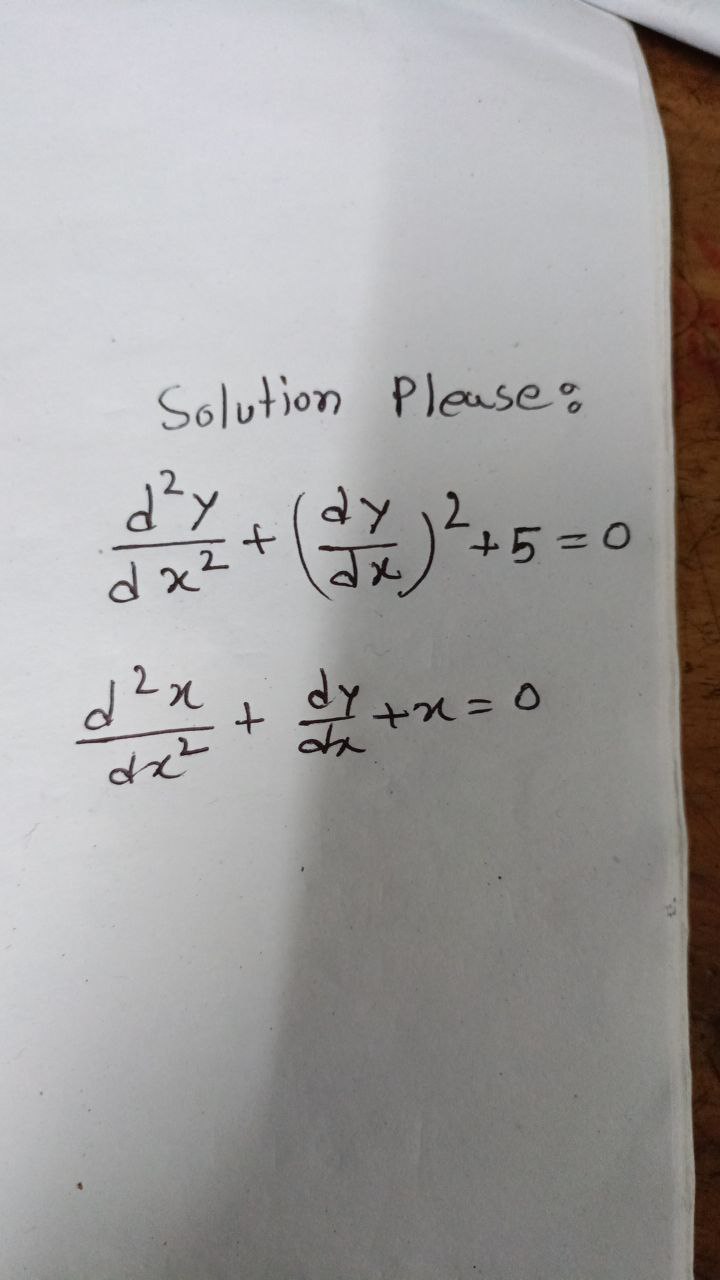 Solution Please:
d²y/dx² + (dy/dx)² + 5 = 0
d²x/dx² + dy/dx + x = 0